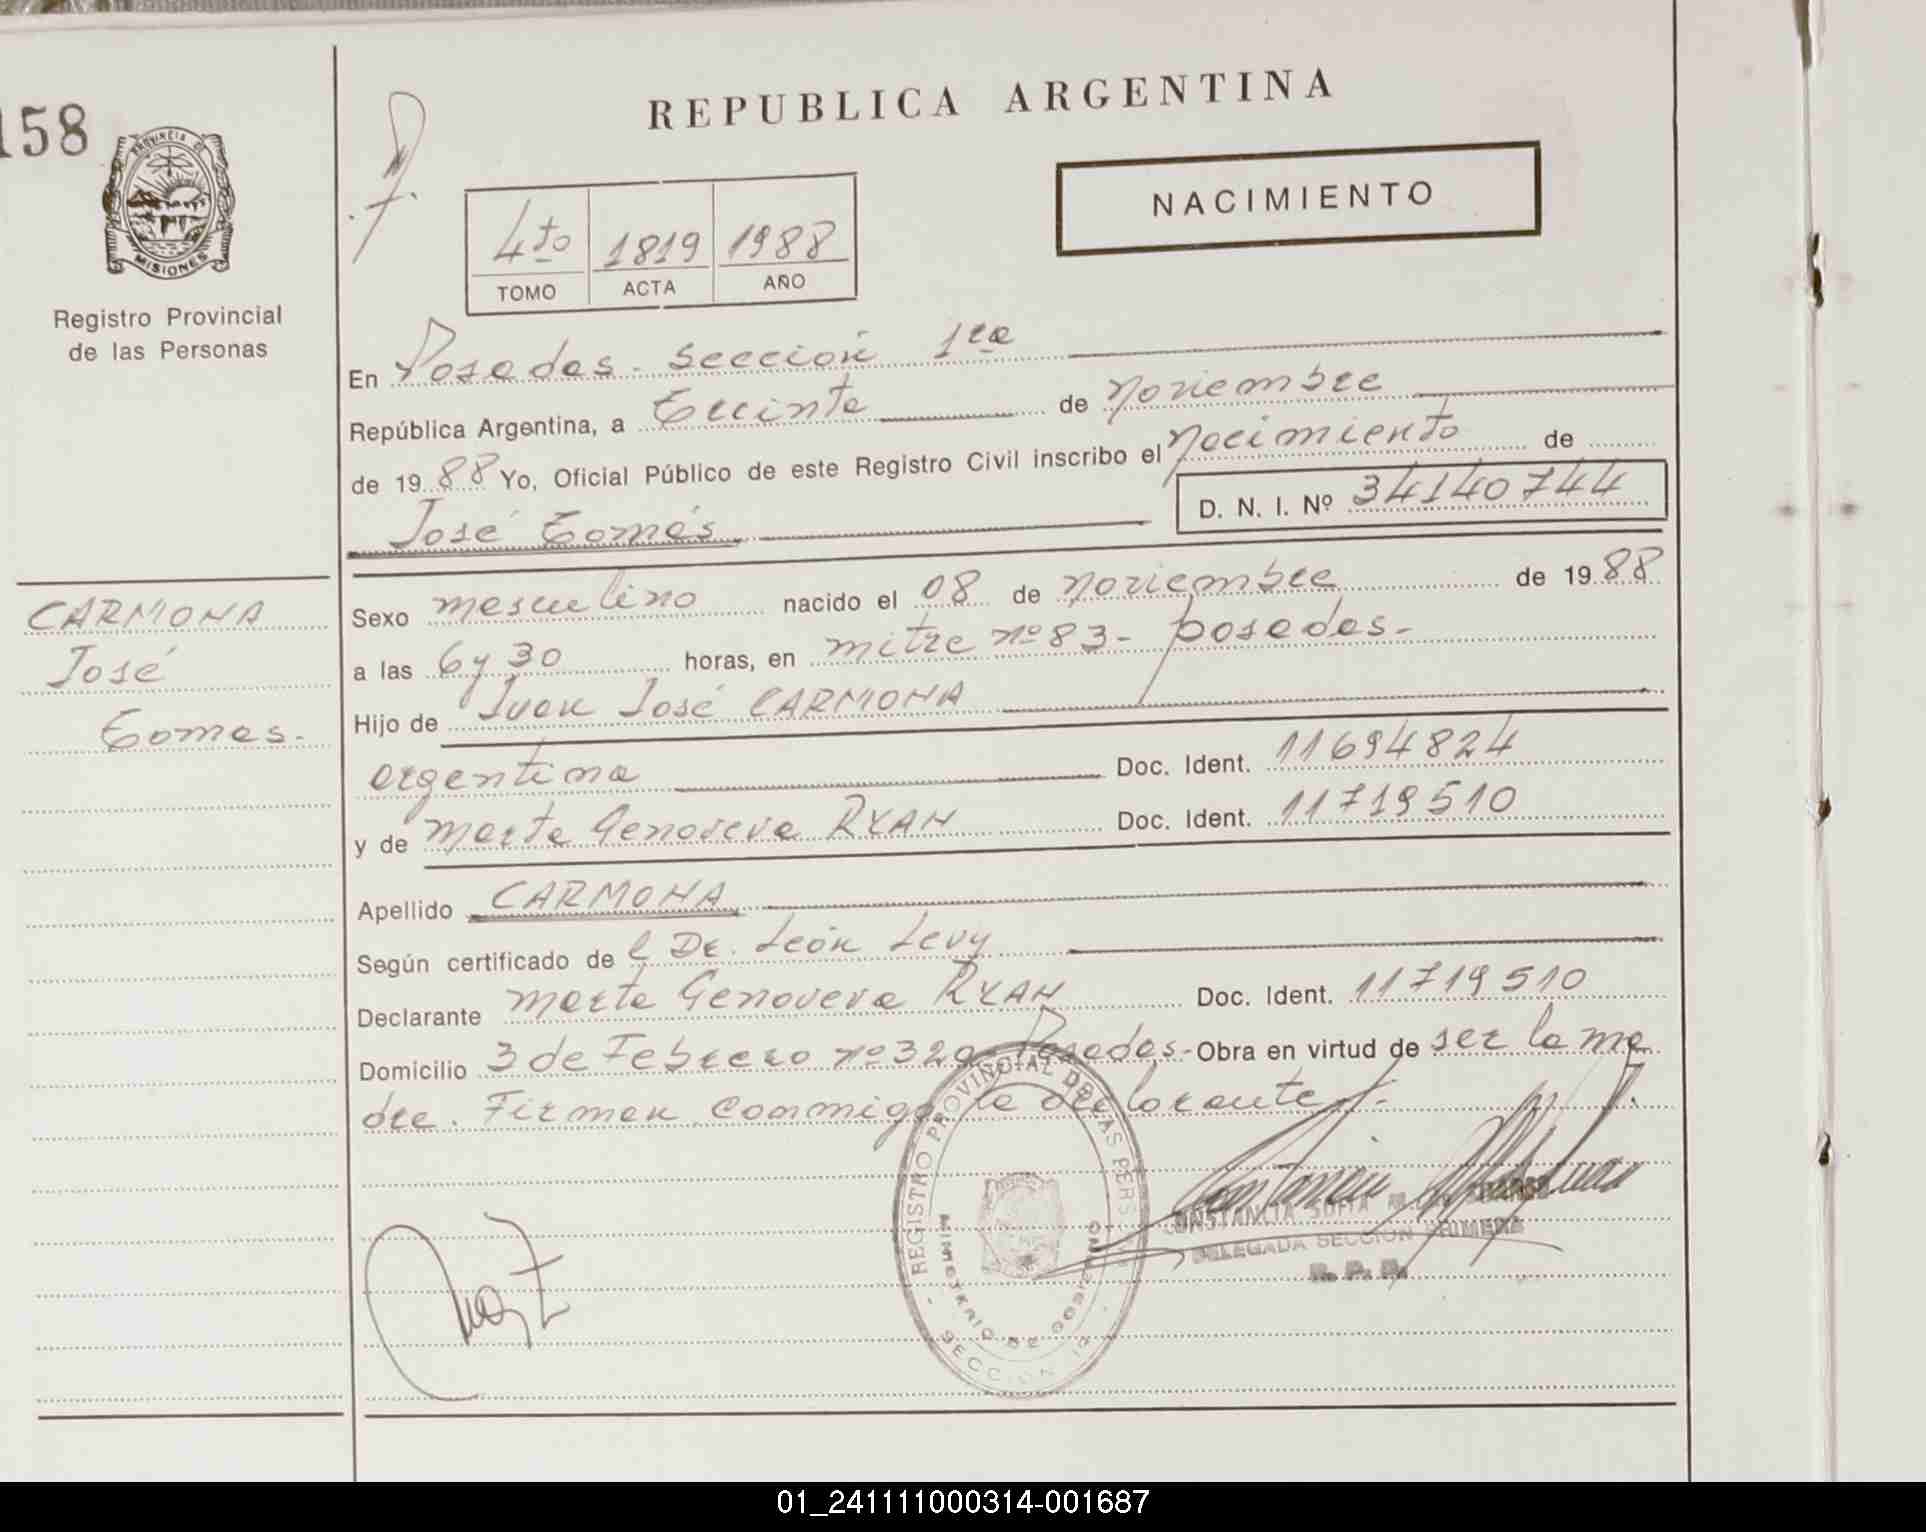 158
PROVINCIA DE
MISIONES
Registro Provincial
de las Personas
CARMONA
José
Tomas.
REPUBLICA ARGENTINA
NACIMIENTO
4to 1819 1988
TOMO ACTA AÑO
En Posadas. Sección 1ra
República Argentina, a Treinta de Noviembre
de 1988 Yo, Oficial Público de este Registro Civil inscribo el Nacimiento de
José Tomás D. N. I. Nº 34140744
Sexo masculino nacido el 08 de noviembre de 1988
a las 6 y 30 horas, en mitre nº 83 - posadas-
Hijo de Juan José CARMONA
argentina Doc. Ident. 11694824
y de Marta Genoveva RYAN Doc. Ident. 11719510
Apellido CARMONA
Según certificado de l Dr. León Levy
Declarante Marta Genoveva RYAN Doc. Ident. 11719510
Domicilio 3 de Febrero nº 320 Posadas- Obra en virtud de ser la ma
dre. Firman conmigo la declarante
REGISTRO PROVINCIAL DE LAS PERSONAS
MINISTERIO DE GOBIERNO
SECCION 1ª
CONSTANCIA SOFIA
DELEGADA SECCION PRIMERA
R. P. P.
01_241111000314-001687